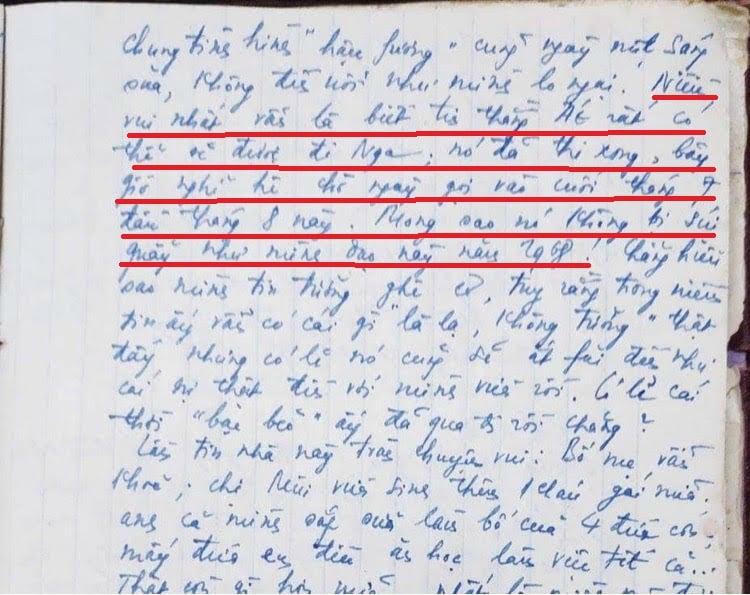 chung tình hình "hậu fương" cũng ngày một sáng
sủa, không đến nỗi như mình lo ngại. Niềm
vui nhất vẫn là biết tin thằng AE rất có
thể sẽ được đi Nga; nó đã thi xong, bây
giờ nghỉ hè chờ ngày gọi vào cuối tháng 7
đầu tháng 8 này. Mong sao nó không bị xúi
quẩy như mình dạo nảy năm 1968! Chẳng hiểu
sao mình tin tưởng ghê cơ, tuy rằng trong niềm
tin ấy vẫn có cái gì "là lạ, không tưởng" thật
đấy nhưng có lẽ nó cũng sẽ ắt fải đến như
cái sự thật đến với mình vừa rồi. Có lẽ cái
thời "bậc bẽo" ấy đã qua đi rồi chăng?
Lắm tin nhà này toàn chuyện vui: Bố mẹ vẫn
khoẻ; chị Mùi vừa sinh thêm 1 cháu gái nữa,
anh cả mình sắp sửa làm bố của 4 đứa con,
mấy đứa em đều ăn học, làm việc tốt cả...
Thật còn gì hơn nữa